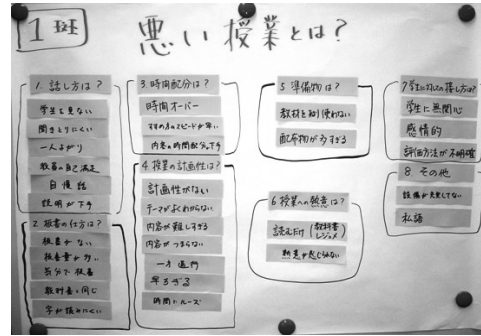 1班
悪い授業とは?
1. 話し方は?
学生を見ない
聞きとりにくい
一人よがり
教員の自己満足
自慢話
説明が下手
2. 板書の仕方は?
板書がない
板書量が多い
自分で板書
教科書と同じ
字が読みにくい
3. 時間配分は?
時間オーバー
すすめ方のスピードが早い
内容の時間配分が下手
4. 授業の計画性は?
計画性がない
テーマがよくわからない
内容が難しすぎる
内容がつまらない
一方通行
早すぎる
時間にルーズ
5 準備物は?
教材を利用しない
配布物が多すぎる
6 授業への熱意は?
読むだけ(教科書 レジュメ)
熱意が感じられない
7 学生に対しての接し方は?
学生に無関心
感情的
評価方法が不明確
8 その他
設備が充実してない
私語